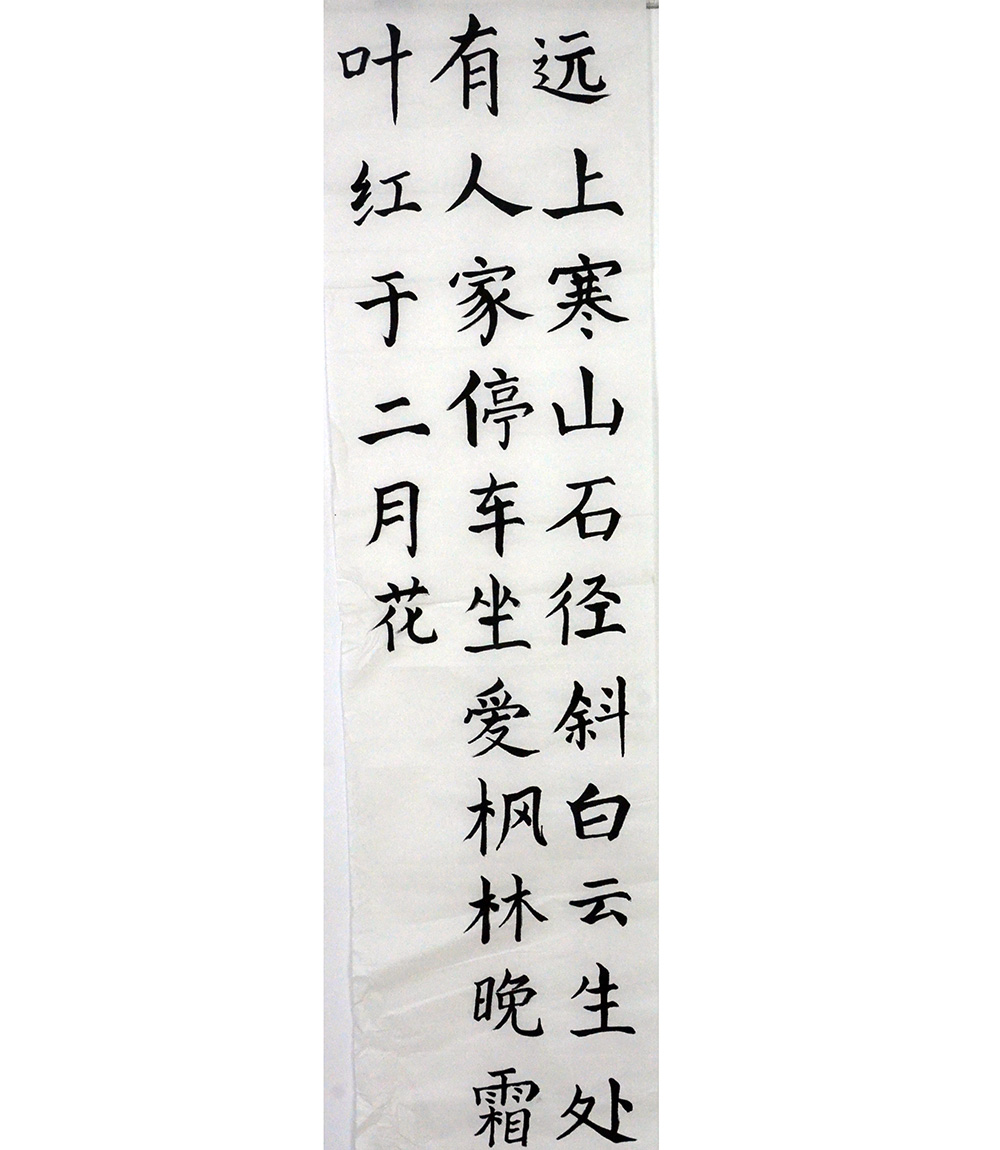 远上寒山石径斜白云生处
有人家停车坐爱枫林晚霜
叶红于二月花